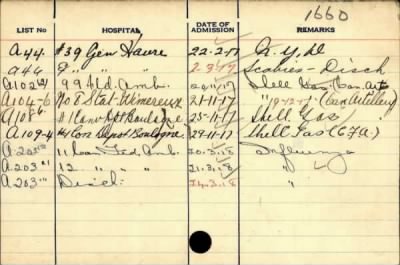 1660
LIST NO HOSPITAL DATE OF ADMISSION REMARKS
A44. #39 Gen Havre 22-2-17
A46 " " " Scabies - Disch
99 Fld. Amb. 17 Shell Gas (Can. Art
A104-6 No 8 Stat. Wimereux 21-11-17 " (Can Artillery)
#1 Con Dpt Boulogne 25-11-17 Shell Gas
A109-4 Con Depot Boulogne 29-11-17 Shell Gas (C.F.A.)
11 Can Fed. Amb. 20.3.18 Influenza
A203 12 " " 21.3.18 "
A203 Disch: 24.3.18 "